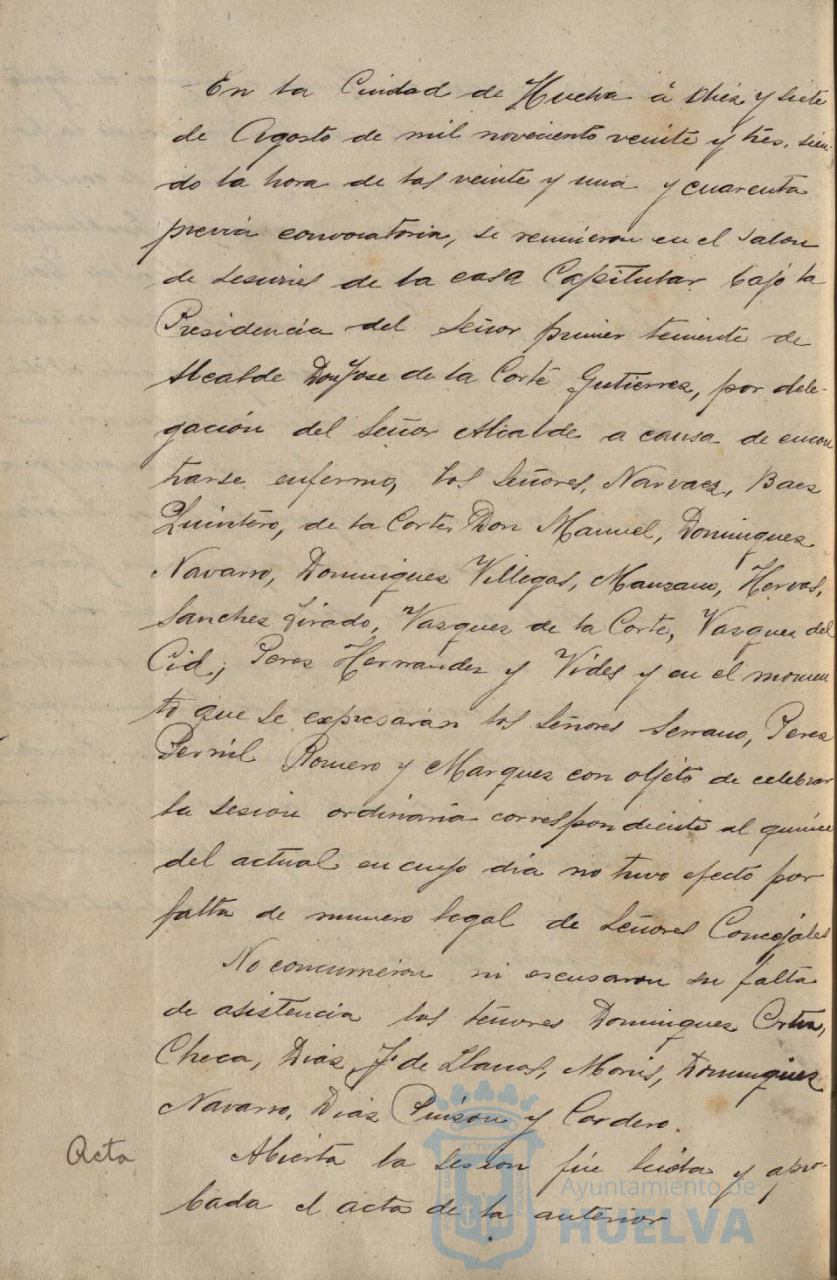 En la Ciudad de Huelva á Diez y siete
de Agosto de mil noveciento veinte y tres, sien-
do la hora de las veinte y una y cuarenta
previa convocatoria, se reunieron en el Salon
de Sesiones de la casa Capitular bajo la
Presidencia del Señor primer teniente de
Alcalde Don Jose de la Corte Gutierrez, por dele-
gación del Señor Alcalde a causa de encon
trarse enfermo, los Señores, Narvaez, Baez
Quintero, de la Corte Don Manuel, Dominguez
Navarro, Dominguez Villegas, Manzano, Hervas,
Sanchez Tirado, Vazquez de la Corte, Vazquez del
Cid, Perez Hernandez y Vides y en el momen
to que se expresarán los Señores Serrano, Perez
Pernil Romero y Marquez con objeto de celebrar
la sesion ordinaria correspondiente al quince
del actual en cuyo dia no tuvo efecto por
falta de numero legal de Señores Concejales
No concurrieron ni escusaron su falta
de asistencia los Señores Dominguez
Checa, Diaz, Jº de Llanos, Moris, Dominguez
Navarro, Diaz Pinzon y Cordero.
Acta
Abierta la sesion fue leida y apro-
bada el acta de la anterior
Ayuntamiento de
HUELVA